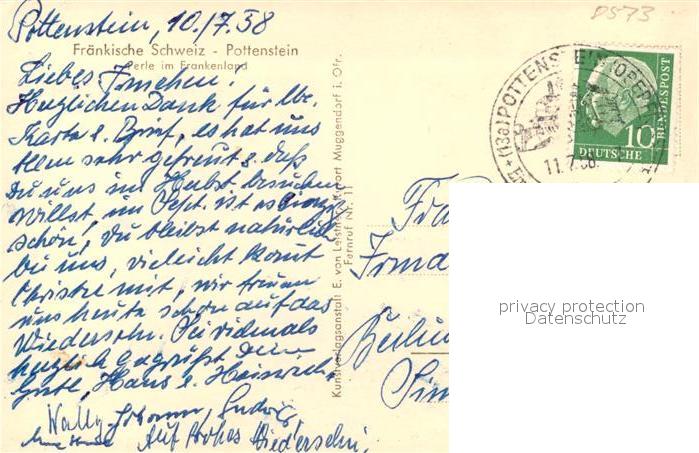 Pottenstein, 10./7.58
Fränkische Schweiz - Pottenstein
Perle im Frankenland
Liebes Irmchen!
Herzlichen Dank für lb.
Karte u. Brief, es hat uns
allen sehr gefreut u. daß
Du uns im Herbst besuchen
willst im Sept. ist es ganz
schön, Du bleibst natürlich
bei uns, vieleicht komt
Christe mit, wir freuen
uns heute schon auf das
Wiedersehn. Sei vielmals
herzlich gegrüßt Deine
Gretl, Hans u. Heinrich
Wally Johann, Ludwig,
Auf frohes Wiedersehn,
Kunstverlagsanstalt E. von Leistner, Kurort Muggendorf i. Ofr.
Fernruf Nr. 11
0573
(13a) POTTENSTEIN
11.7.58
10
DEUTSCHE
BUNDESPOST
Frau
Irma
Berlin
privacy protection
Datenschutz